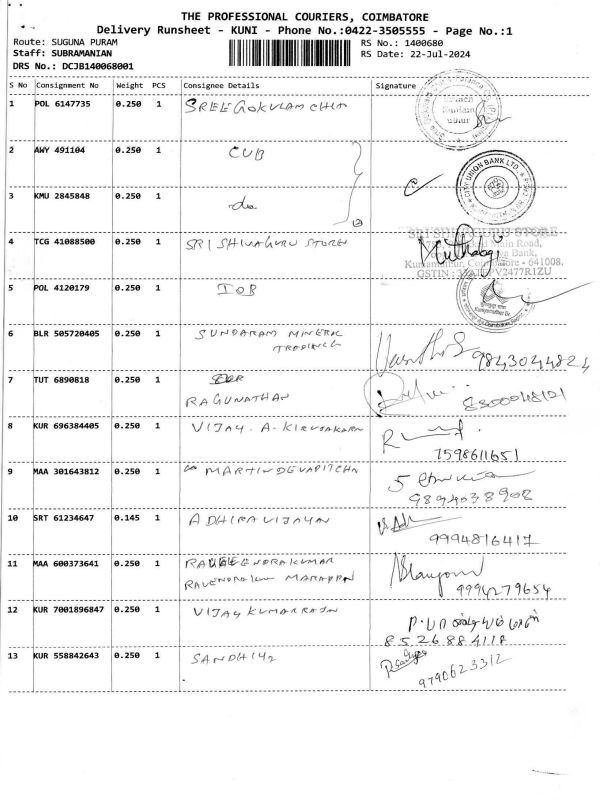 THE PROFESSIONAL COURIERS, COIMBATORE
Delivery Runsheet - KUNI - Phone No.:0422-3505555 - Page No.:1
Route: SUGUNA PURAM RS No.: 1400680
Staff: SUBRAMANIAN RS Date: 22-Jul-2024
DRS No.: DCJB140068001
S No Consignment No Weight PCS Consignee Details Signature
1 POL 6147735 0.250 1 SREE GOKULAM CHIT
2 AWY 491104 0.250 1 CUB
CITY UNION BANK LTD.
3 KMU 2845848 0.250 1 do
4 TCG 41088500 0.250 1 SRI SHIVAGURU STORE
STORE
Main Road,
Bank,
Coimbatore - 641008.
GSTIN :
5 POL 4120179 0.250 1 IOB
6 BLR 505720405 0.250 1 SUNDARAM MINERAL
TRADING
9843044824
7 TUT 6890818 0.250 1
RAGUNATHAN
8300048121
8 KUR 696384405 0.250 1 VIJAY. A-
7598611651
9 MAA 301643812 0.250 1 MARTIN
9894038908
10 SRT 61234647 0.145 1 ADHIRA VIJAYAN
9994816417
11 MAA 600373641 0.250 1
9994279654
12 KUR 7001896847 0.250 1 VIJAY KUMAR RAJAN
8526884118
13 KUR 558842643 0.250 1 SANDHIYA
9790623312